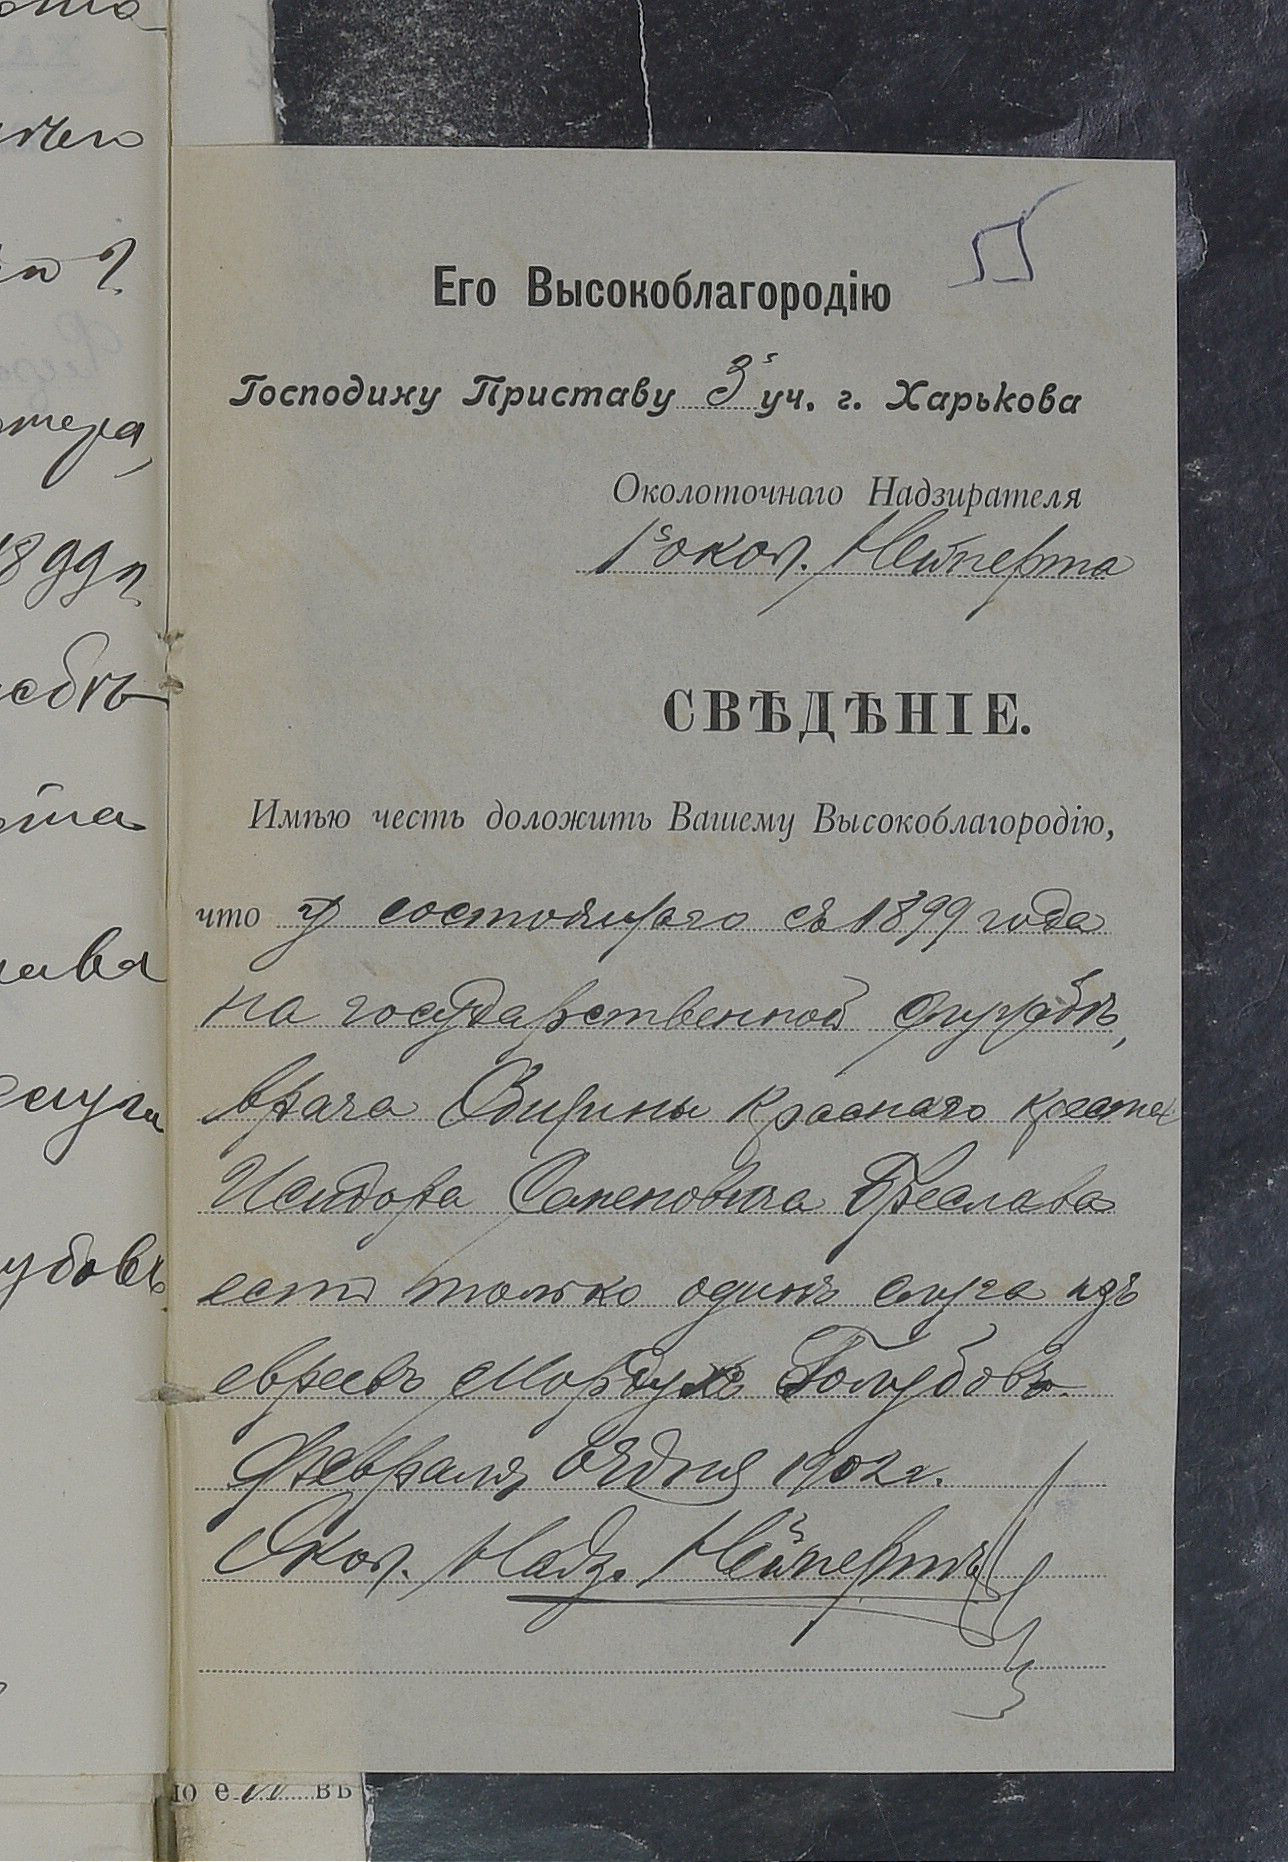 Его Высокоблагородію
Господину Приставу 3 уч. г. Харькова
Околоточнаго Надзирателя
1 окол. Нейперта
СВѢДѢНІЕ.
Имѣю честь доложить Вашему Высокоблагородію,
что у состоящаго съ 1899 года
на государственной службѣ,
врача Общины краснаго креста
Исидора Семеновича Бреслава
есть только одинъ слуга изъ
евреевъ Мордухъ Голубовъ.
Февраля дня 1902 г.
Окол. Надз. Нейпертъ